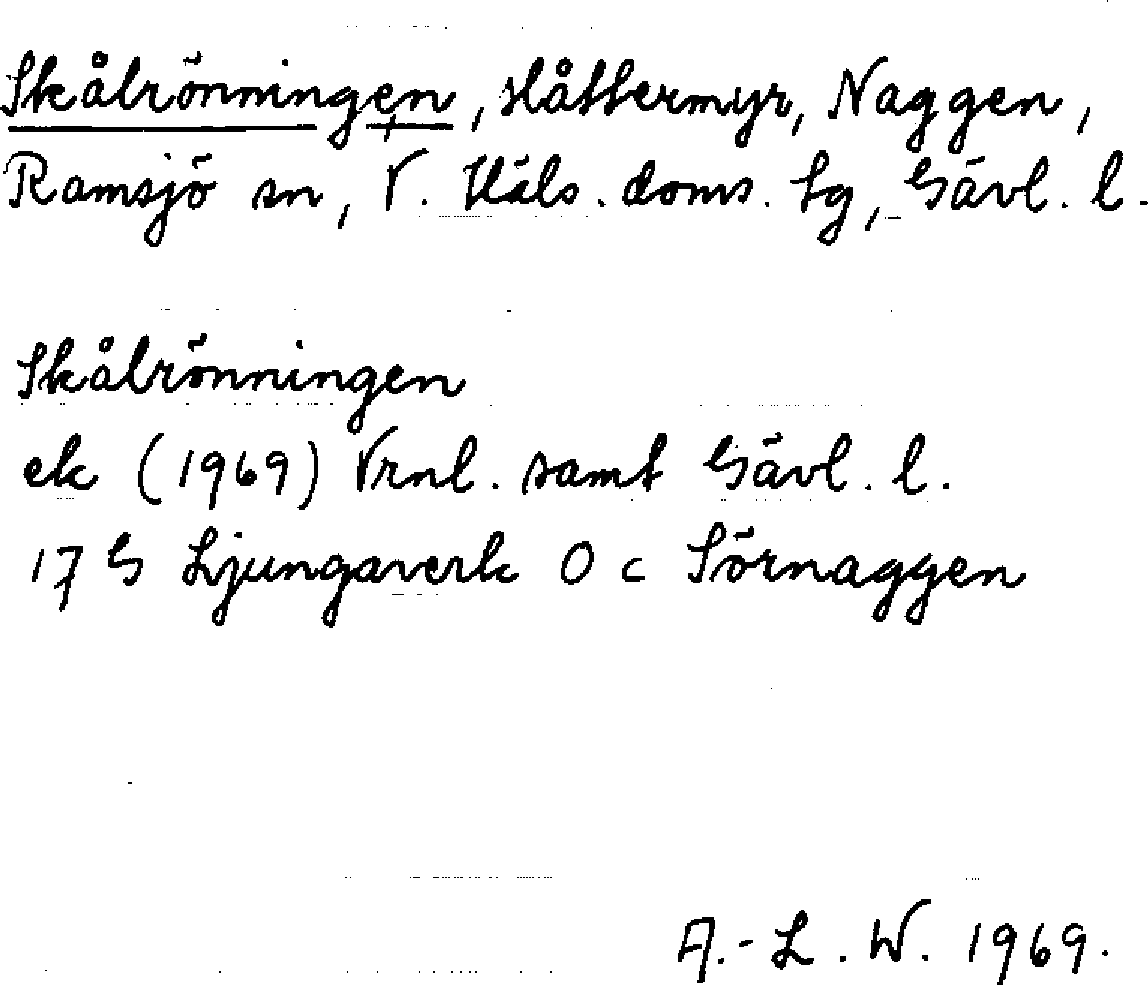 Skålrönningen, slåttermyr, Naggen,
Ramsjö sn, V. Häls. doms. tg, Gävl. l.
Skålrönningen
ek (1969) Vrnl. samt Gävl. l.
17 G Ljungaverk 0 c Sörnaggen
A.-L. W. 1969.